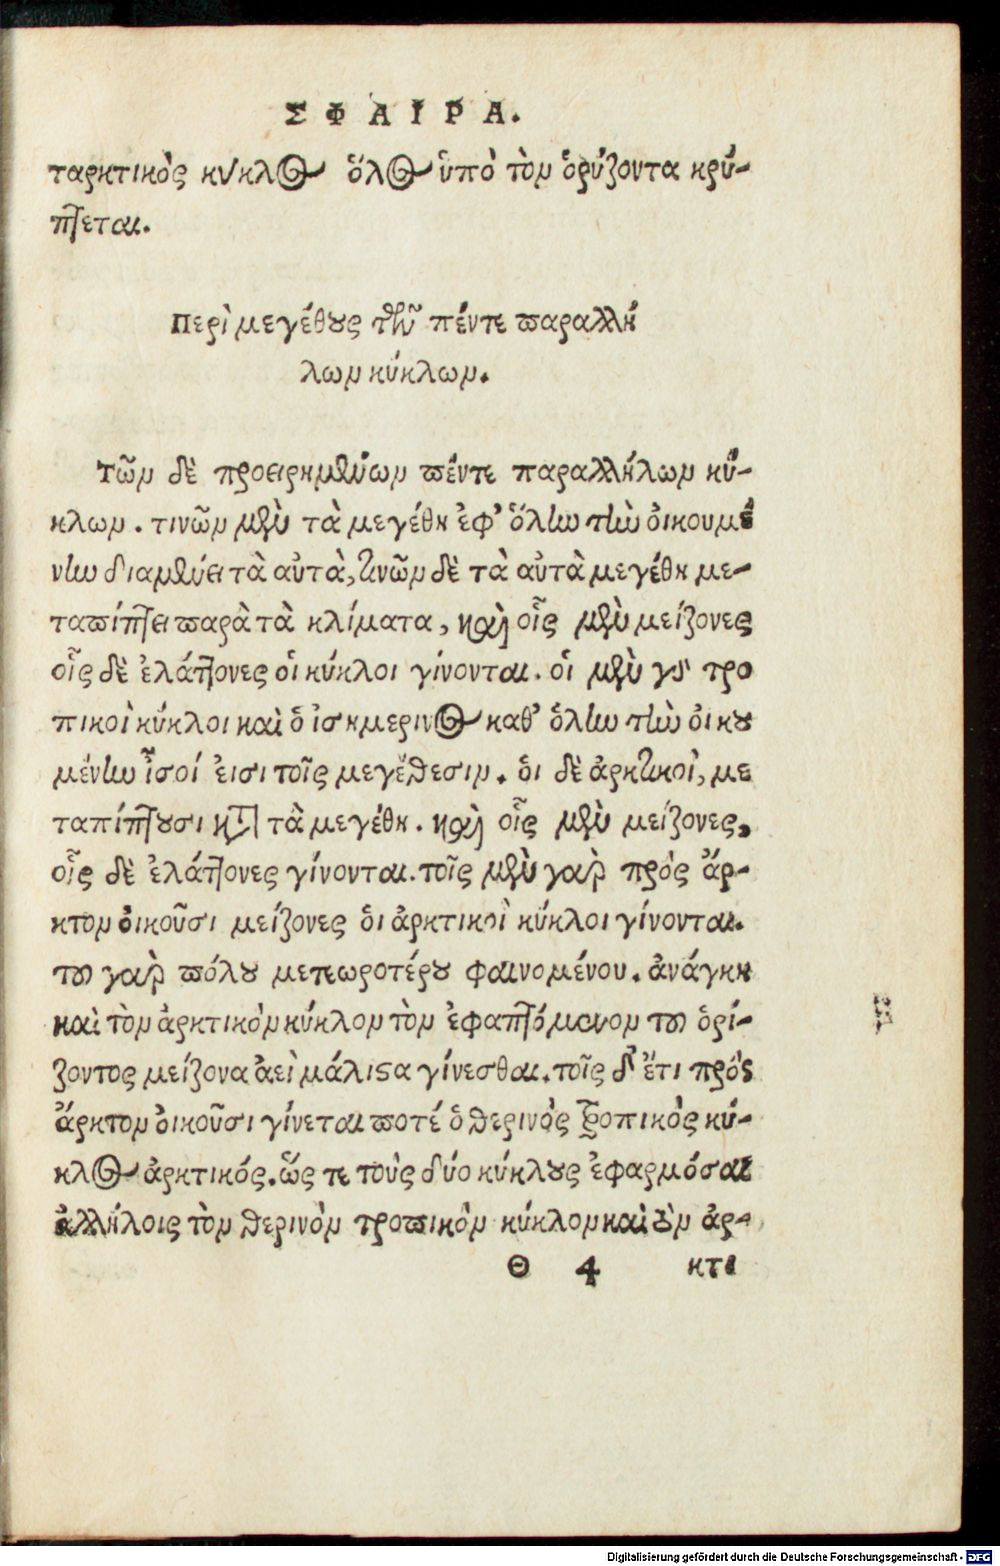 ΣΦΑΙΡΑ.
ταρκτικὸς κύκλος ὅλος ὑπὸ τὸν ὁρίζοντα κρύ-
πτεται.
Περὶ μεγέθους τῶν πέντε παραλλή
λων κύκλων.
Τῶν δὲ προειρημένων πέντε παραλλήλων κύ-
κλων. τινῶν μὲν τὰ μεγέθη ἐφ' ὅλην τὴν οἰκουμέ
νην διαμένει τὰ αὐτὰ, τινῶν δὲ τὰ αὐτὰ μεγέθη με-
ταπίπτει παρὰ τὰ κλίματα, καὶ οἷς μὲν μείζονες
οἷς δὲ ἐλάττονες οἱ κύκλοι γίνονται. οἱ μὲν γὰρ τρο
πικοὶ κύκλοι καὶ ὁ ἰσημερινὸς καθ' ὅλην τὴν οἰκου
μένην ἶσοί ἐισι τοῖς μεγέθεσιν. ὁι δὲ ἀρκτικοὶ, με
ταπίπτουσι κατὰ τὰ μεγέθη. καὶ οἷς μὲν μείζονες,
οἷς δὲ ἐλάττονες γίνονται. τοῖς μὲν γὰρ πρὸς ἄρ-
κτον ὀικοῦσι μείζονες ὁι ἀρκτικοὶ κύκλοι γίνονται.
του γὰρ πόλου μετεωροτέρου φαινομένου. ἀνάγκη
καὶ τὸν ἀρκτικὸν κύκλον τὸν ἐφαπτόμενον του ὁρί-
ζοντος μείζονα ἀεὶ μάλιστα γίνεσθαι. τοῖς δ' ἔτι πρὸς
ἄρκτον ὀικοῦσι γίνεται ποτέ ὁ θερινὸς τροπικὸς κύ-
κλος ἀρκτικός. ὥς τε τοὺς δύο κύκλους ἐφαρμόσαι
ἀλλήλοις τὸν θερινὸν τροπικὸν κύκλον καὶ τὸν ἀρ-
Θ 4 κτι
Digitalisierung gefördert durch die Deutsche Forschungsgemeinschaft - DFG